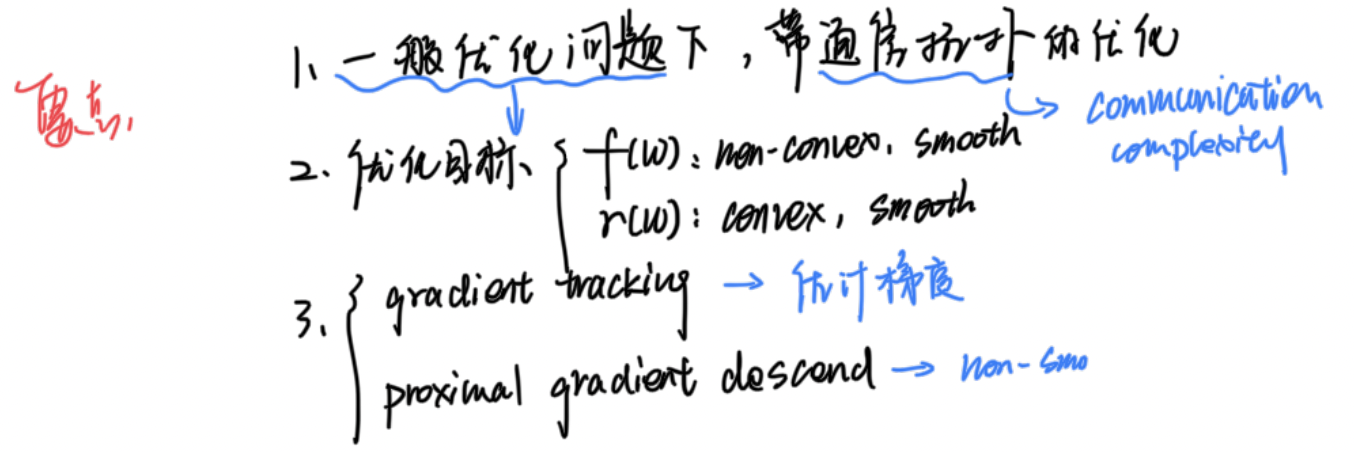 要点,
1、一般优化问题下，带通信拓扑的优化
communication
complexity
2、优化目标、{ f(w): non-convex, smooth
r(w): convex, smooth
3、{ gradient tracking → 估计梯度
proximal gradient descend → non-smo